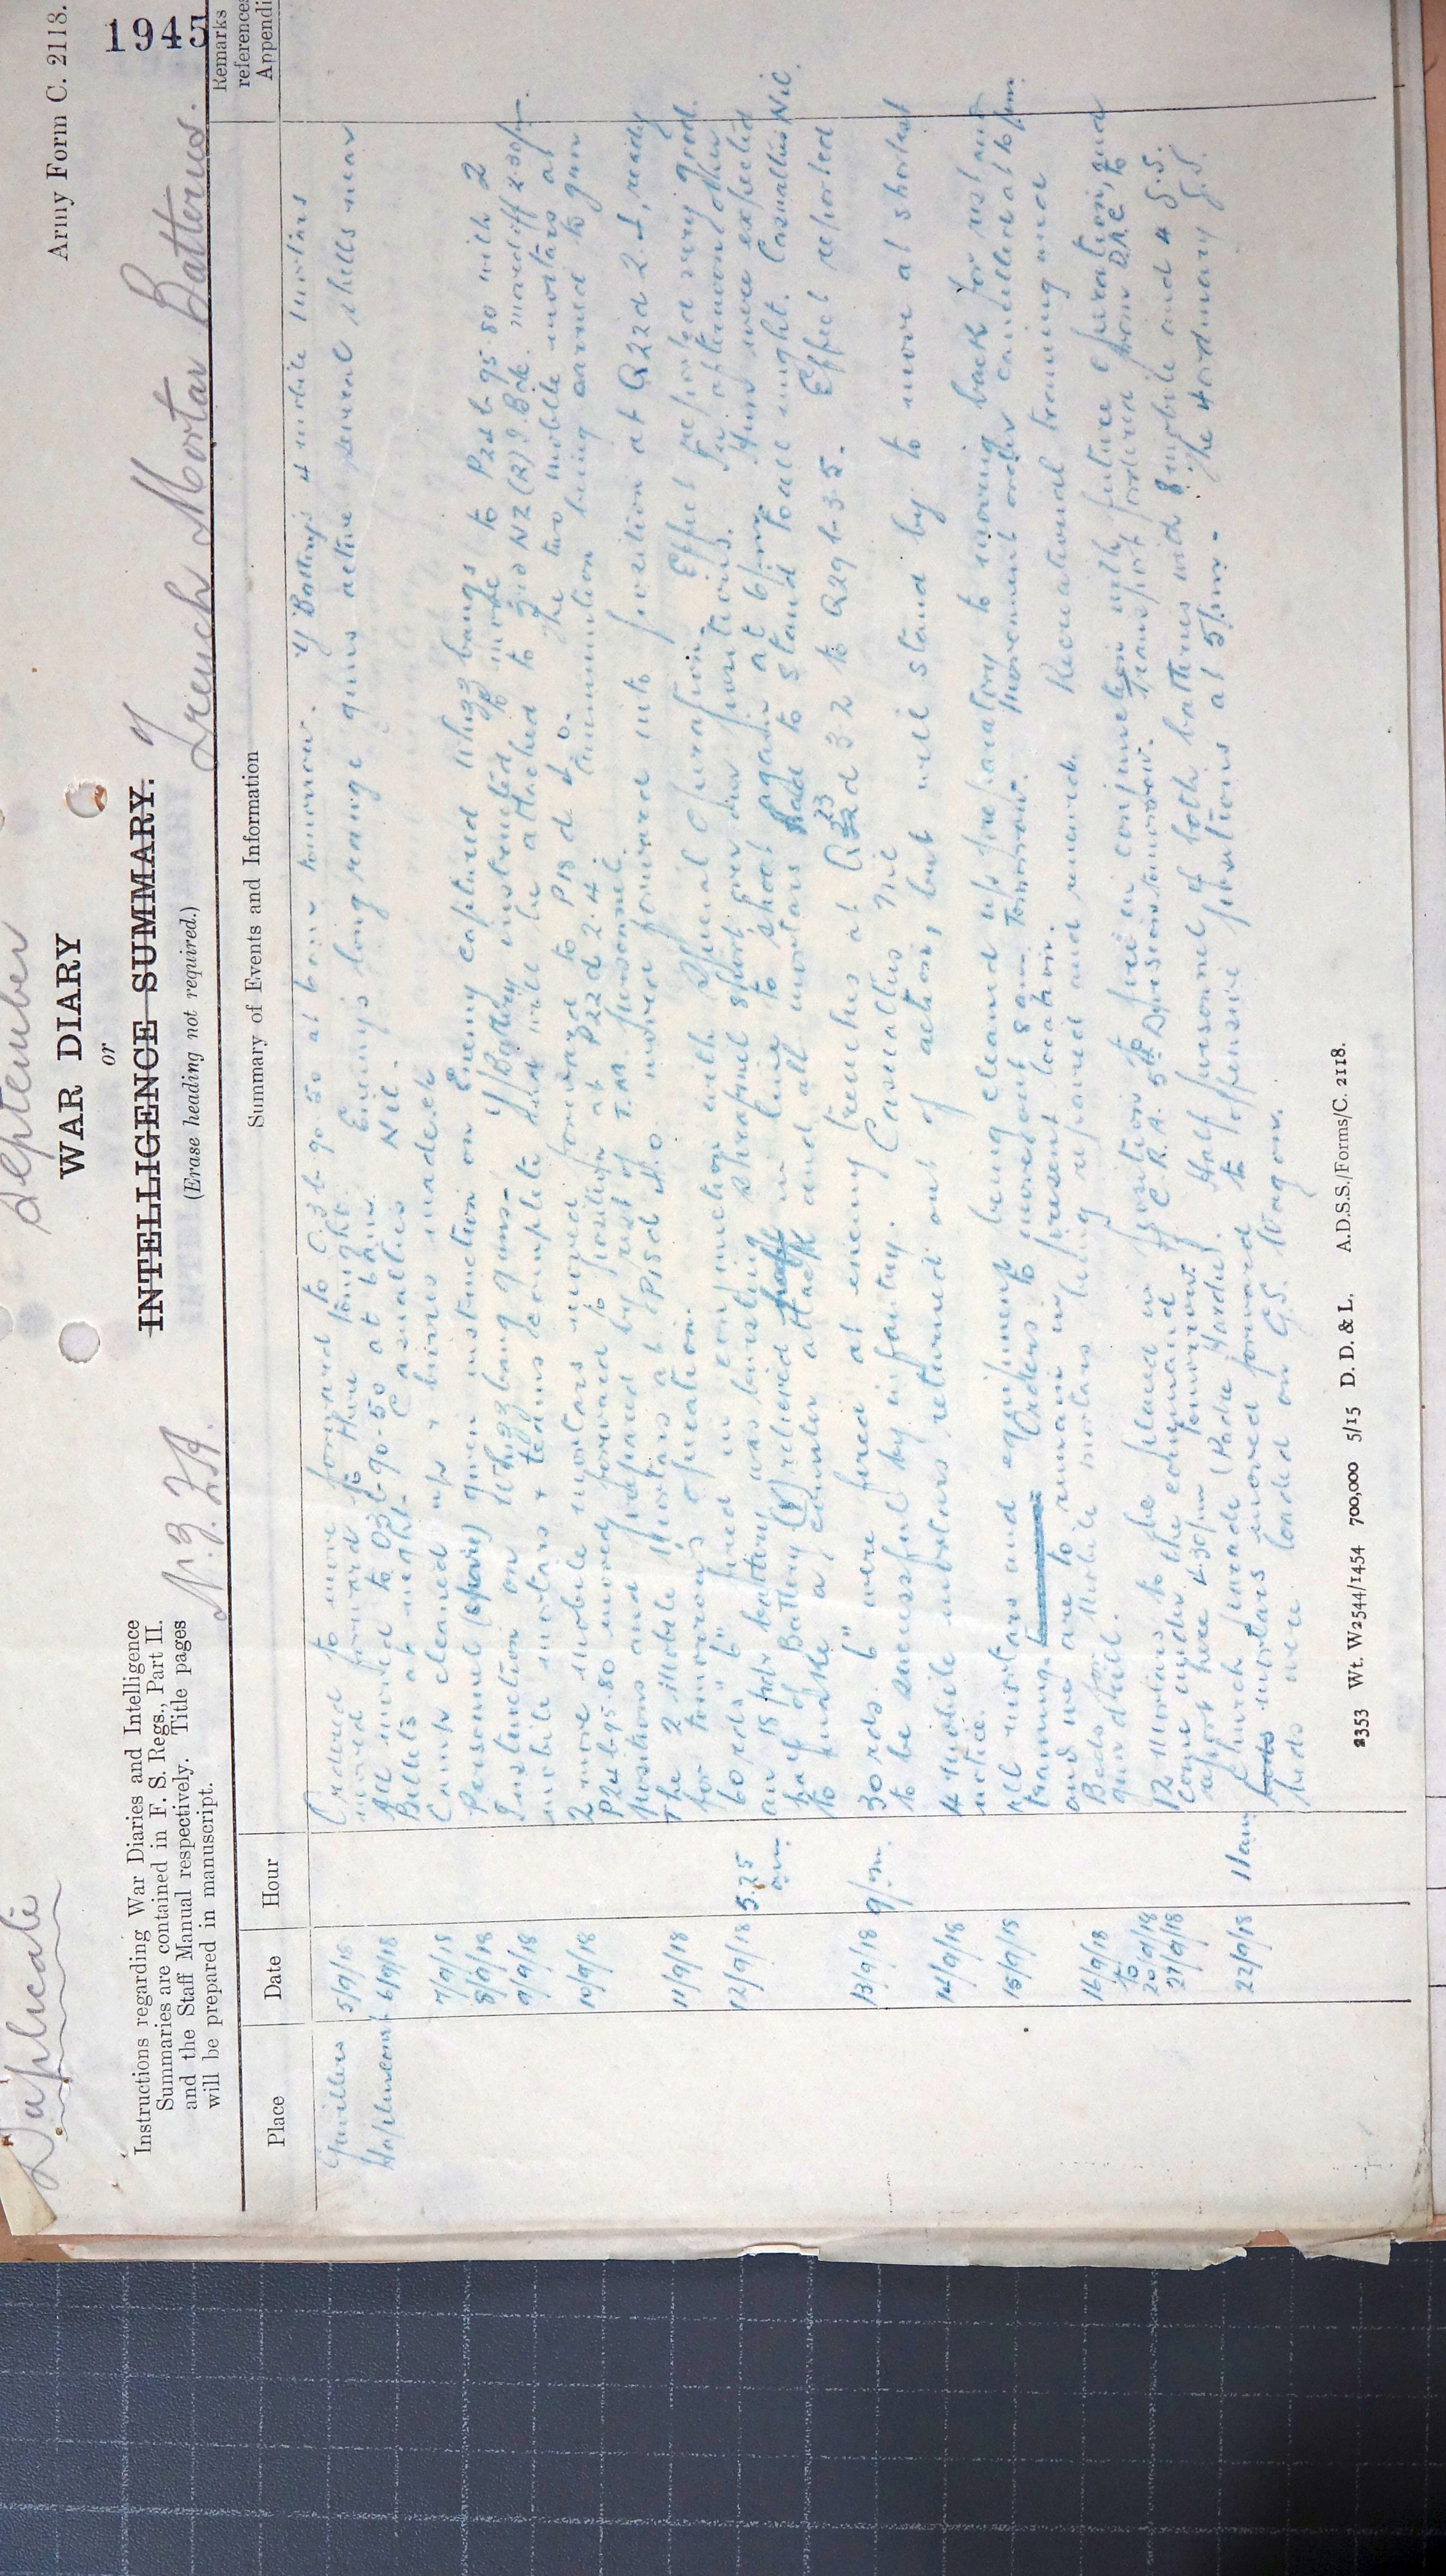 Duplicate
September
Army Form C. 2118.
1945
WAR DIARY
or
INTELLIGENCE SUMMARY.
(Erase heading not required.)
Instructions regarding War Diaries and Intelligence
Summaries are contained in F. S. Regs., Part II.
and the Staff Manual respectively. Title pages
will be prepared in manuscript.
N.Z.F.A.
of Trench Mortar Batteries.
Place
Date
Hour
Summary of Events and Information
Remarks
references
Appendi
5/9/18 Ordered to move forward to O.3.b.90.50 at 6 am tomorrow. Y Battery's 4 mobile mortars
moved forward to tonight.
Haplincourt 6/9/18 All moved to O3b.90.50 at 6 am. Enemy's long range guns active several shells near
Billets at night. Casualties Nil.
7/9/18 Camp cleaned up & bivvies made etc
8/9/18 Personnel (spare) given instruction on Enemy captured whizz bangs
9/9/18 Instruction on whizz bang guns. Y Battery instructed to move to P24b.95.80 with 2
mobile mortars & teams complete and will be attached to 2nd NZ (R) I. Bde. moved off 2.30 pm.
10/9/18 2 more mobile mortars moved forward to P18d.4.0. The two mobile mortars at
P24b.95.80 moved forward to position at P22d.2.4. Ammunition being carried to gun
positions and prepared by rest of T.M. personnel.
11/9/18 The 2 Mobile Mortars at P18d.4.0 moved forward into position at Q22d.2.4, ready
for tomorrow's operation.
12/9/18 5.25 am. 60 rds 6" fired in conjunction with Special Operation. Effect reported very good.
an 18 pdr battery was bursting shrapnel short over our positions. In afternoon other
half of Battery (Y) relieved in line to shoot again at 6 pm. Hun were expected
to make a counter attack and all mortars to stand to all night. Casualties Nil.
13/9/18 9 pm. 30 rds 6" were fired at enemy trenches at Q23d.3.2 to Q29b.3.5. Effect reported
to be successful by infantry. Casualties Nil
14/9/18 4 mobile mortars returned out of action, but will stand by to move at shortest
notice.
15/9/18 All mortars and equipment being cleaned up preparatory to moving back for rest and
training. Orders to move out 8 am tomorrow. Movement order cancelled at 6 pm.
and we are to remain in present location.
16/9/18 to 20/9/18 Beds for Mobile mortars being repaired and renewed. Recreational training and
gun drill.
21/9/18 12 Mortars to be placed in position to fire in conjunction with future operation, and
come under the command of C.R.A. 5th Division tomorrow. Transport ordered from D.A.C. to
report here 4.30 pm tomorrow.
22/9/18 11 am Church parade (Padre Hardie). Half personnel of both batteries with 8 mobile and 4 G.S.
mortars moved forward to offensive positions at 5 pm. The 4 ordinary G.S.
beds were loaded on G.S. Wagon.
2353 Wt. W2544/1454 700,000 5/15 D. D. & L. A.D.S.S./Forms/C. 2118.